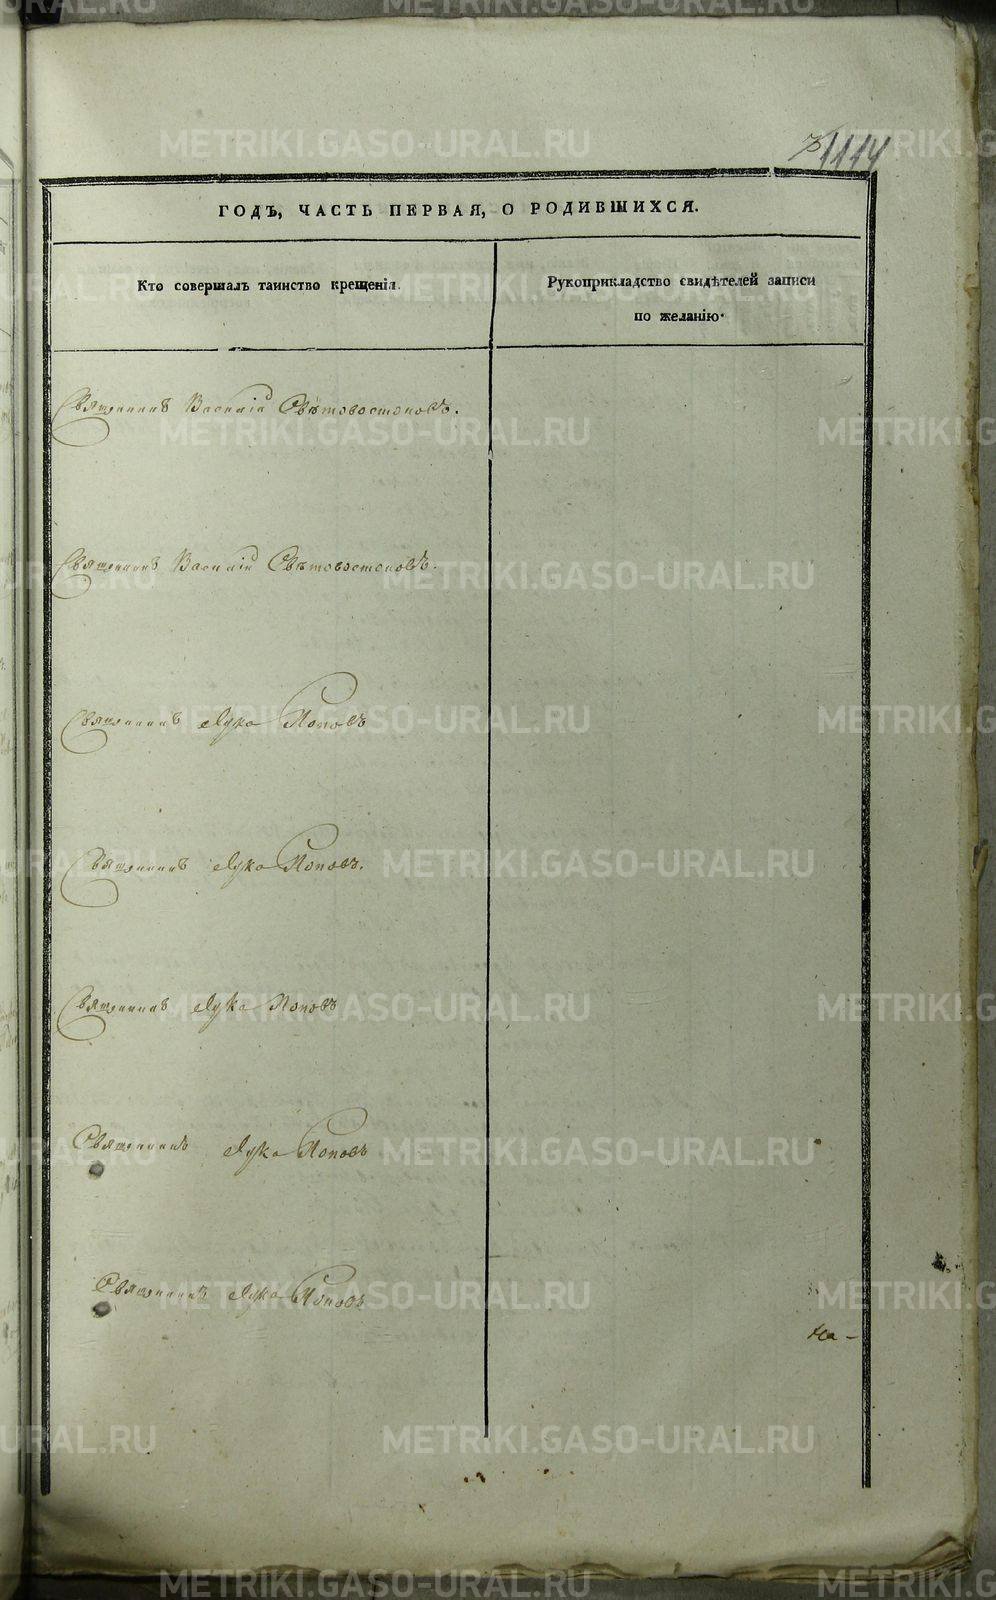 1114
ГОДЪ, ЧАСТЬ ПЕРВАЯ, О РОДИВШИХСЯ.
Кто совершалъ таинство крещенія.
Рукоприкладство свидѣтелей записи
по желанію.
Священникъ Василій Свѣтовостоковъ.
Священникъ Василій Свѣтовостоковъ.
Священникъ Лука Поповъ
Священникъ Лука Поповъ.
Священникъ Лука Поповъ
Священникъ Лука Поповъ
Священникъ Лука Поповъ
На-
METRIKI.GASO-URAL.RU